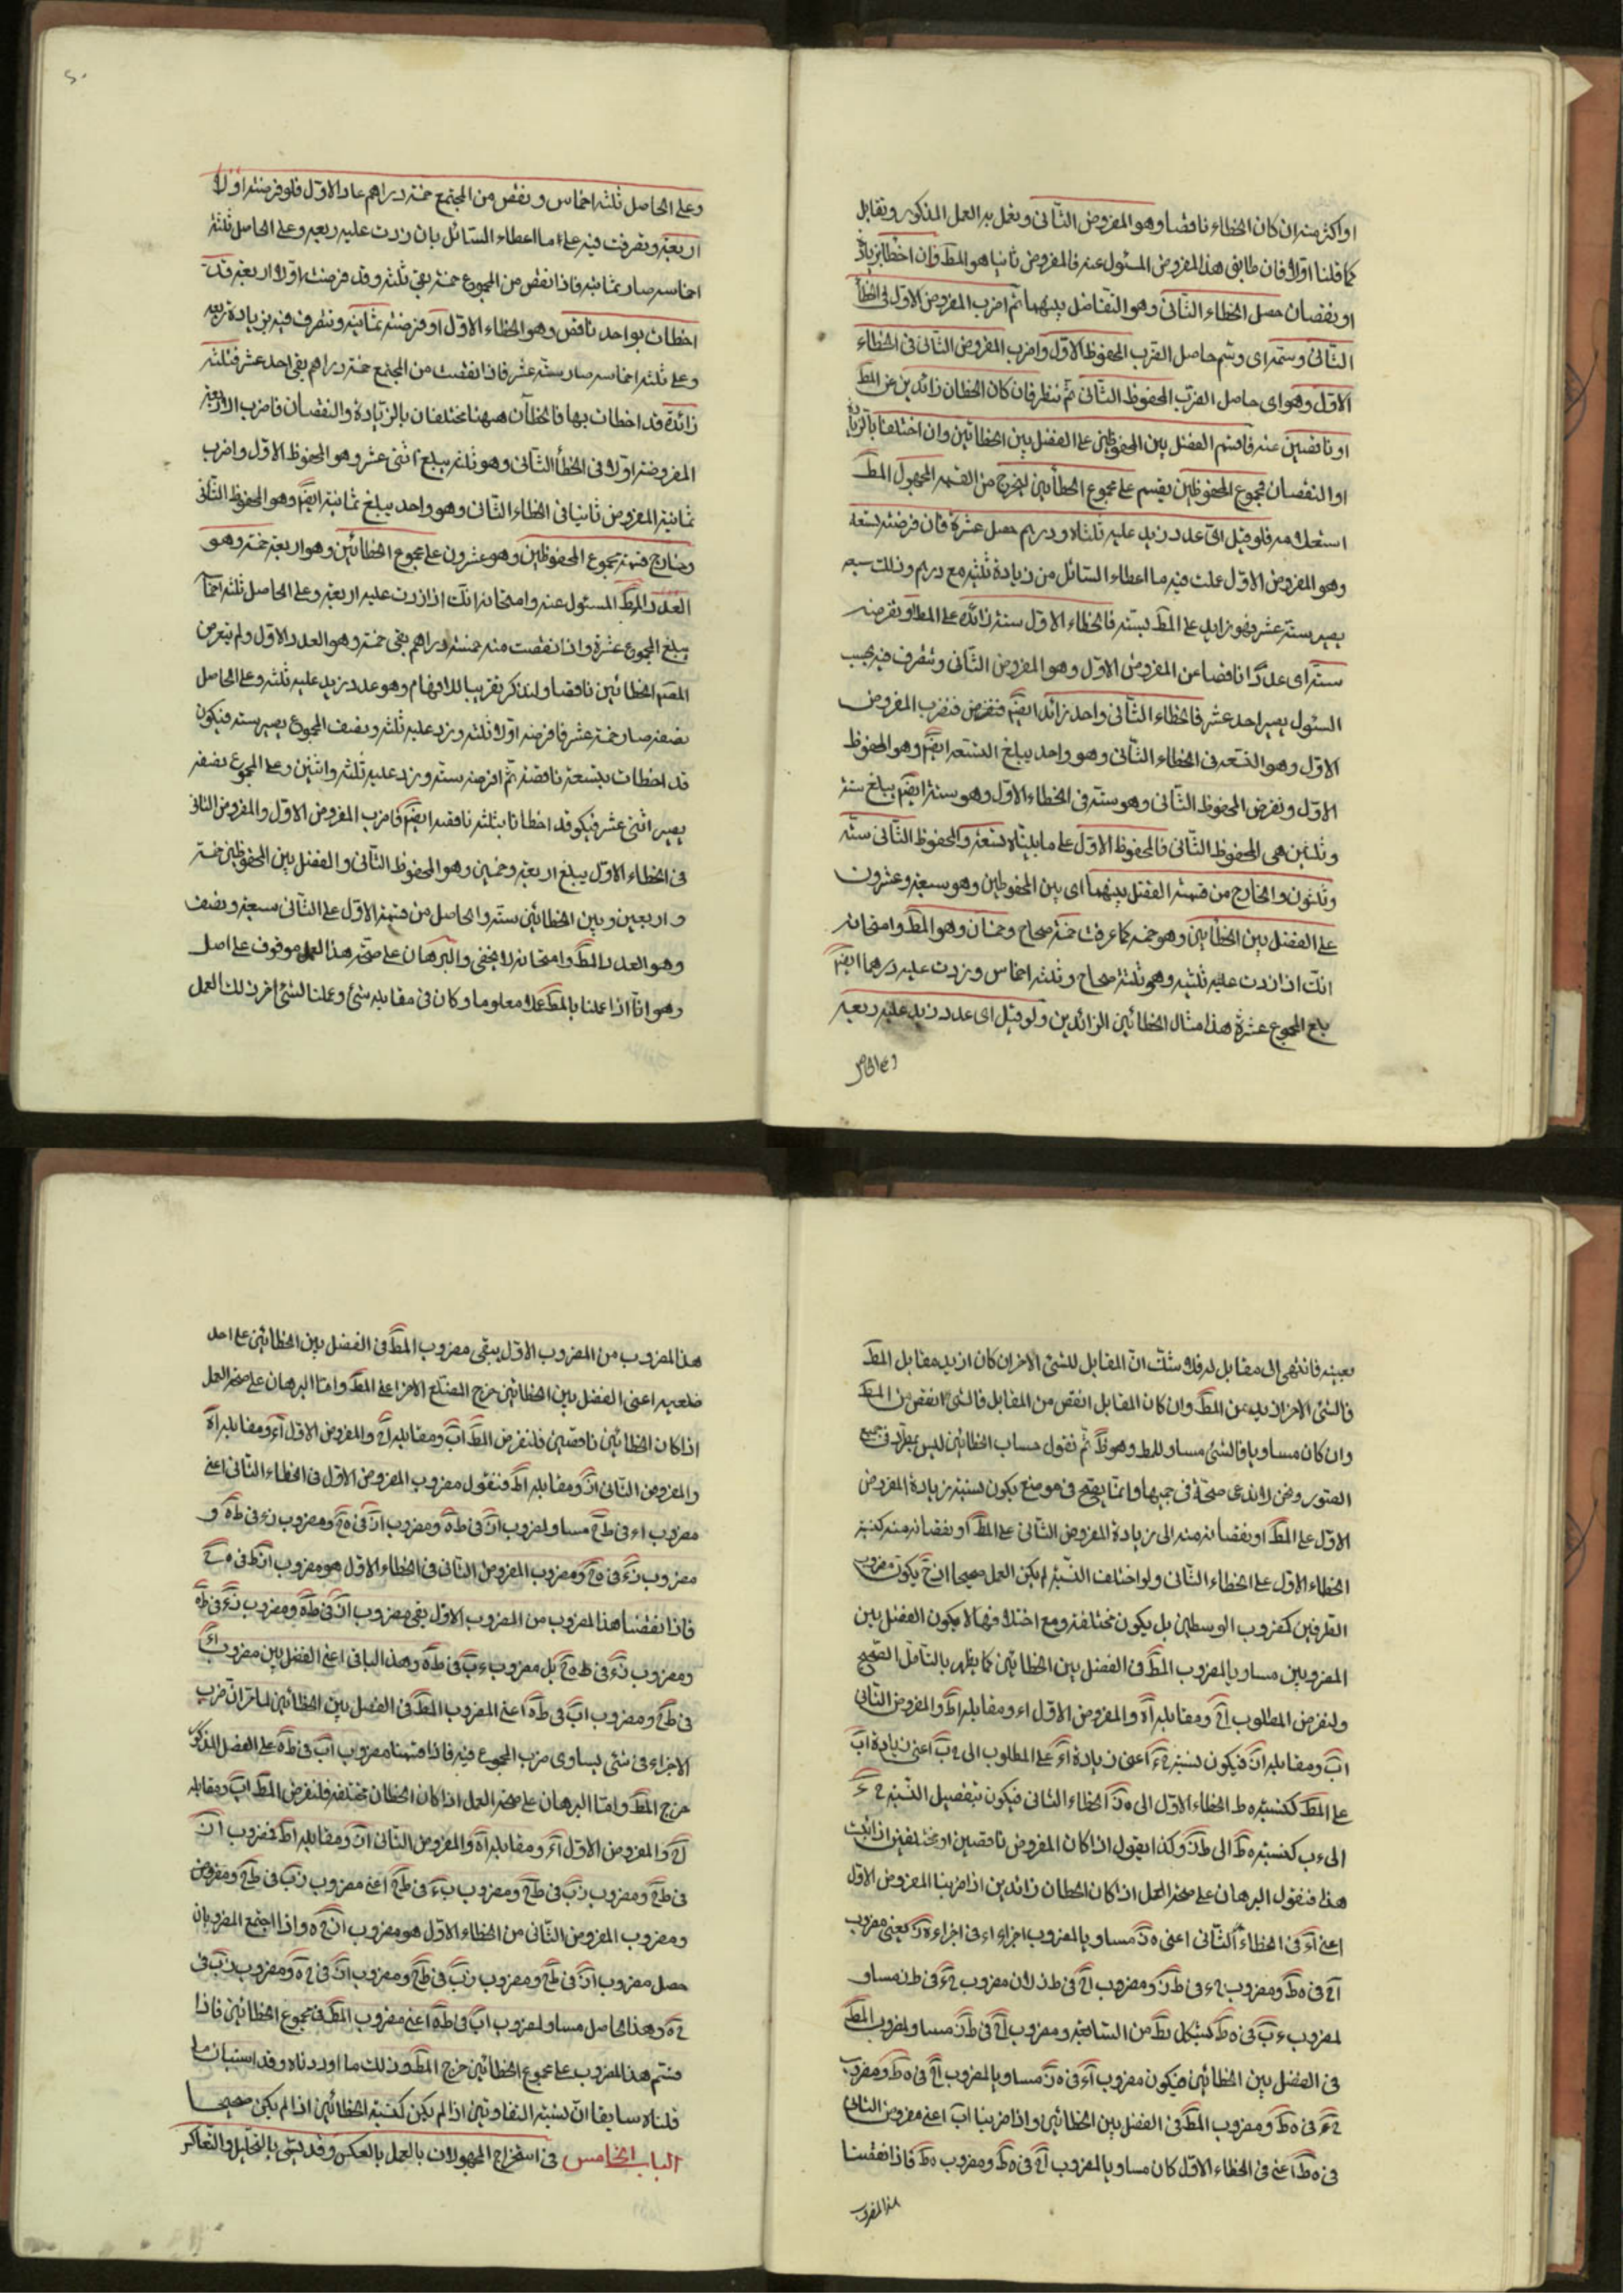 او اكثر منه ان كان الخطاء ناقصا وهو المفروض الثانى ونعمل به العمل المذكور ونقابل
كما قلنا اولا فان طابق هذا المفروض المسئول عنه فالمفروض ثانيا هو المط وان اخطا بزيادة
او نقصان حصل الخطاء الثانى وهو التفاضل بينهما ثم اضرب المفروض الاول فى الخطأ
الثانى وسمه اى وسم حاصل الضرب المحفوظ الاول واضرب المفروض الثانى فى الخطاء
الاول وهو اى حاصل الضرب المحفوظ الثانى ثم ننظر فان كان الخطان زائدين عن المط
او ناقصين عنه فاقسم الفضل بين المحفوظين على الفضل بين الخطائين وان اختلفا بالزيادة
او النقصان فمجموع المحفوظين يقسم على مجموع الخطأين ليخرج من القسمه المجهول المط
فلو قيل اى عدد زيد عليه ثلثاه ودرهم حصل عشرة فان فرضته تسعة
وهو المفروض الاول عملت فيه ما اعطاء السائل من زيادة ثلثيه مع درهم وذلك سبعه
يصير ستة عشر فهو زايد على المط بستة فالخطاء الاول ستة زائدة على المط او نفرضه
ستة اى عددا ناقصا عن المفروض الاول وهو المفروض الثانى ونتصرف فيه بحسب
السئول يصير احد عشر فالخطاء الثانى واحد زائد ايضا فنضرب المفروض
الاول وهو التسعه فى الخطاء الثانى وهو واحد يبلغ التسعه ايضا وهو المحفوظ
الاول ونفرض المحفوظ الثانى وهو ستة فى الخطاء الاول وهو ستة ايضا يبلغ ستة
وثلثين هى المحفوظ الثانى فالمحفوظ الاول على ما بيناه تسعة والمحفوظ الثانى ستة
وثلثون والخارج من قسمة الفضل بينهما اى بين المحفوظين وهو سبعة وعشرون
على الفضل بين الخطأين وهو خمسه كما عرفت خمسة صحاح وخمسان وهو المط وامتحانه
انك اذا زدت عليه ثلثيه وهو ثلثة صحاح وثلثه اخماس وزدت عليه درهما ايضا
بلغ المجموع عشرة هذا مثال الخطائين الزائدين ولو قيل اى عدد زيد عليه ربعه
وعلى الحاصل
وعلى الحاصل ثلثه اخماس ونقص من المجتمع خمسة دراهم عاد الاول فلو فرضته اولا
اربعة وتصرفت فيه على ما اعطاء السائل بان زدت عليه ربعه وعلى الحاصل ثلثة
اخماسه صار ثمانيه فاذا نقص من المجموع خمسة بقى ثلثه وقد فرضت اولا اربعة فقد
اخطات بواحد ناقص وهو الخطاء الاول او فرضته ثمانيه وتتصرف فيه بزيادة ربعه
وعلى ثلثه اخماسه صار ستة عشر فاذا نقصت من المجتمع خمسة دراهم بقى احد عشر فثلثه
زائدة قد اخطات بها فالخطأن ههنا مختلفان بالزيادة والنقصان فاضرب الاربعة
المفروضة اولا فى الخطأ الثانى وهو ثلثه يبلغ اثنى عشر وهو المحفوظ الاول واضرب
ثمانية المفروض ثانيا فى الخطاء الثانى وهو واحد يبلغ ثمانية ايضا وهو المحفوظ الثانى
وخارج قسمة مجموع المحفوظين وهو عشرون على مجموع الخطائين وهو اربعة خمسة وهو
العدد المط المسئول عنه وامتحانه انك اذا زدت عليه اربعة وعلى الحاصل ثلثه اخما
يبلغ المجموع عشرة واذا نقصت منه خمسة دراهم بقى خمسة وهو العدد الاول ولم يتعرض
المص الخطائين ناقصا ولنذكر تقريبا للافهام وهو عدد زيد عليه ثلثه وعلى الحاصل
نصفه صار خمسة عشر فافرضه اولا ثلثه وزد عليه ثلثه ونصف المجموع يصير ستة فيكون
قد اخطات بتسعة ناقصة ثم افرضه ستة وزد عليه ثلثه واثنين وعلى المجموع نصفه
يصير اثنى عشر فيكو قد اخطانا بثلثه ناقصه ايضا فاضرب المفروض الاول والمفروض الثانى
فى الخطاء الاول يبلغ اربعة وخمسين وهو المحفوظ الثانى والفضل بين المحفوظين خمسة
واربعين وبين الخطائين ستة والحاصل من قسمة الاول على الثانى سبعة ونصف
وهو العدد المط وامتحانه لا يخفى والبرهان على صحة هذا العمل موقوف على اصل
وهو انا اذا عملنا بالمط عملا معلوما وكان فى مقابله شئ وعملنا لشئ اخر ذلك العمل
بعينه فانتهى الى مقابل له فلا شك ان المقابل للشئ الاخر ان كان ازيد مقابل المط
فالشئ الاخر ازيد من المط وان كان المقابل انقص من المقابل فالشئ انقص من المط
وان كان مساويا فالشئ مساو للمط وهو ظ ثم نقول حساب الخطائين ليس بمطرد فى جميع
الصور ونحن لا ندعى صحته فى جميعها وانما يصح فى موضع يكون نسبة زيادة المفروض
الاول على المط او نقصانه منه الى زيادة المفروض الثانى على المط او نقصانه منه كنسبة
الخطاء الاول على الخطاء الثانى ولو اختلف النسبة لم يكن العمل صحيحا اذ ح يكون مضروب
الطرفين كمضروب الوسطين بل يكون مختلفة ومع اختلافهما لا يكون الفضل بين
المضروبين مساويا لمضروب المط فى الفضل بين الخطائين كما يظهر بالتامل الصحيح
ولنفرض المطلوب اح ومقابله اه والمفروض الاول اء ومقابله اط والمفروض الثانى
اب ومقابله ان فيكون نسبة حء اعنى زيادة اء على المطلوب الى حب اعنى زيادة اب
على المط كنسبة ه ط الخطاء الاول الى ه ز الخطاء الثانى فيكون بتفصيل النسبة حء
الى ءب كنسبة ه ط الى ط ز وكذا يقول اذا كان المفروض ناقصين او مختلفين اذا ثبت
هذا فنقول البرهان على صحة العمل اذا كان الخطان زائدين اذا ضربنا المفروض الاول
اعنى اء فى الخطاء الثانى اعنى ه ز مساويا لمضروب اجزاء اء فى اجزاء ه ز يعنى مضروب
اح فى ه ط ومضروب حء فى ط ز ومضروب اح فى ط ز لان مضروب حء فى ط ز مساو
لمضروب ءب فى ه ط بشكل يط من السابعة ومضروب اح فى ط ز مساو لمضروب المط
فى الفضل بين الخطائين فيكون مضروب اء فى ه ز مساويا لمضروب اح فى ه ط ومضروب
حء فى ه ط ومضروب المط فى الفضل بين الخطائين واذا ضربنا اب اعنى مفروض الثانى
فى ه ط اعنى فى الخطاء الاول كان مساويا لمضروب اح فى ه ط ومضروب ه ط فاذا نقصنا
هذا المضروب
هذا المضروب من المضروب الاول يبقى مضروب المط فى الفضل بين الخطائين على احد
ضلعيه اعنى الفضل بين الخطائين خرج الضلع الاخر اعنى المط واما البرهان على صحة العمل
اذا كان الخطائين ناقصين فلنفرض المط اب ومقابله اح والمفروض الاول اء ومقابله اه
والمفروض الثانى از ومقابله اط فنقول مضروب المفروض الاول فى الخطاء الثانى اعنى
مضروب اء فى ط ح مساو لمضروب از فى ط ه ومضروب از فى ه ح ومضروب زء فى ط ه و
مضروب زء فى ه ح ومضروب المفروض الثانى فى الخطاء الاول هو مضروب از فى ه ح
فاذا نقصنا هذا المضروب من المضروب الاول بقى مضروب از فى ط ه ومضروب زء فى ط ه
ومضروب زء فى ه ح بل مضروب ءب فى ط ه وهذا الباقى اعنى الفضل بين مضروب اء
فى ط ح ومضروب اب فى ط ه اعنى المضروب المط فى الفضل بين الخطائين لما مر ان ضرب
الاجزاء فى شئ يساوى ضرب المجموع فيه فاذا قسمنا مضروب اب فى ط ه على الفضل المذكور
خرج المط واما البرهان على صحة العمل اذا كان الخطان مختلفة فلنفرض المط اب ومقابله
اح والمفروض الاول اء ومقابله اه والمفروض الثانى از ومقابله اط فمضروب از
فى ط ح ومضروب زب فى ط ح ومضروب بء فى ط ح اعنى مضروب زب فى ط ح ومفروض
ومضروب المفروض الثانى من الخطاء الاول هو مضروب از ح ه واذا اجتمع المضروبان
حصل مضروب از فى ط ح ومضروب زب فى ط ح ومضروب از فى ح ه ومضروب زب فى
ح ه وهذا الحاصل مساو لمضروب اب فى ط ه اعنى مضروب المط فى مجموع الخطائين فاذا
قسم هذا المضروب على مجموع الخطائين خرج المط وذلك ما اوردناه وقد استبان ما
قلناه سابقا ان نسبة التفاوتين اذا لم يكن كنسبة الخطائين اذا لم يكن صحيحا
الباب الخامس فى استخراج المجهولات بالعمل بالعكس وقد يسمى بالتحليل والتعاكس